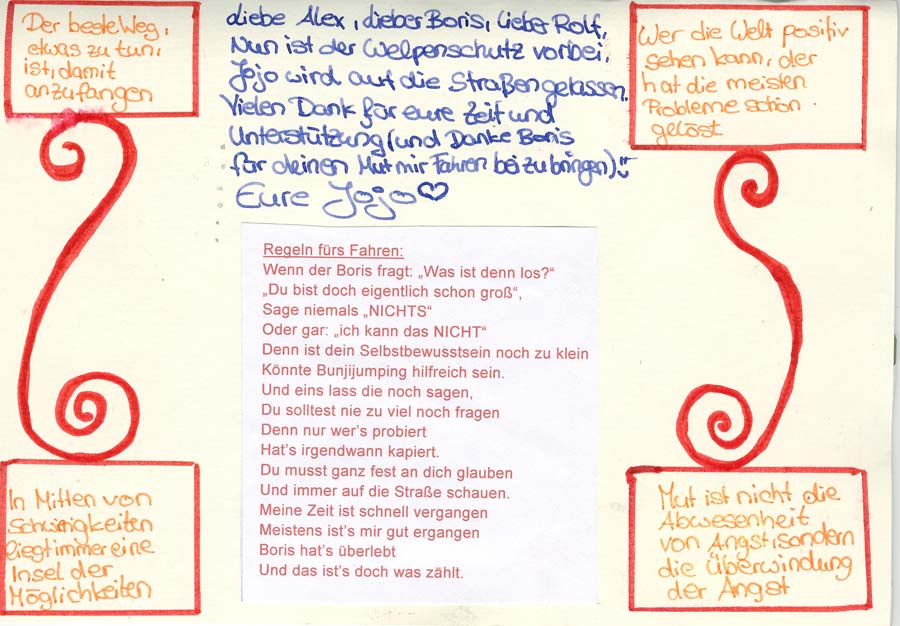 Der beste Weg,
etwas zu tun,
ist, damit
anzufangen
diebe Alex, dieber Boris, lieber Rolf,
Nun ist der Welpenschutz vorbei,
Jojo wird auf die Straßen gelassen.
Vielen Dank für eure Zeit und
Unterstützung (und Danke Boris
für deinen Mut mir Fahren beizubringen)
Eure Jojo
Wer die Welt positiv
sehen kann, der
hat die meisten
Probleme schon
gelöst
Regeln fürs Fahren:
Wenn der Boris fragt: „Was ist denn los?“
„Du bist doch eigentlich schon groß“,
Sage niemals „NICHTS“
Oder gar: „ich kann das NICHT“
Denn ist dein Selbstbewusstsein noch zu klein
Könnte Bunjijumping hilfreich sein.
Und eins lass die noch sagen,
Du solltest nie zu viel noch fragen
Denn nur wer's probiert
Hat's irgendwann kapiert.
Du musst ganz fest an dich glauben
Und immer auf die Straße schauen.
Meine Zeit ist schnell vergangen
Meistens ist's mir gut ergangen
Boris hat's überlebt
Und das ist's doch was zählt.
In Mitten von
Schwirigkeiten
liegt immer eine
Insel der
Möglichkeiten
Mut ist nicht die
Abwesenheit
von Angst, sondern
die Überwindung
der Angst